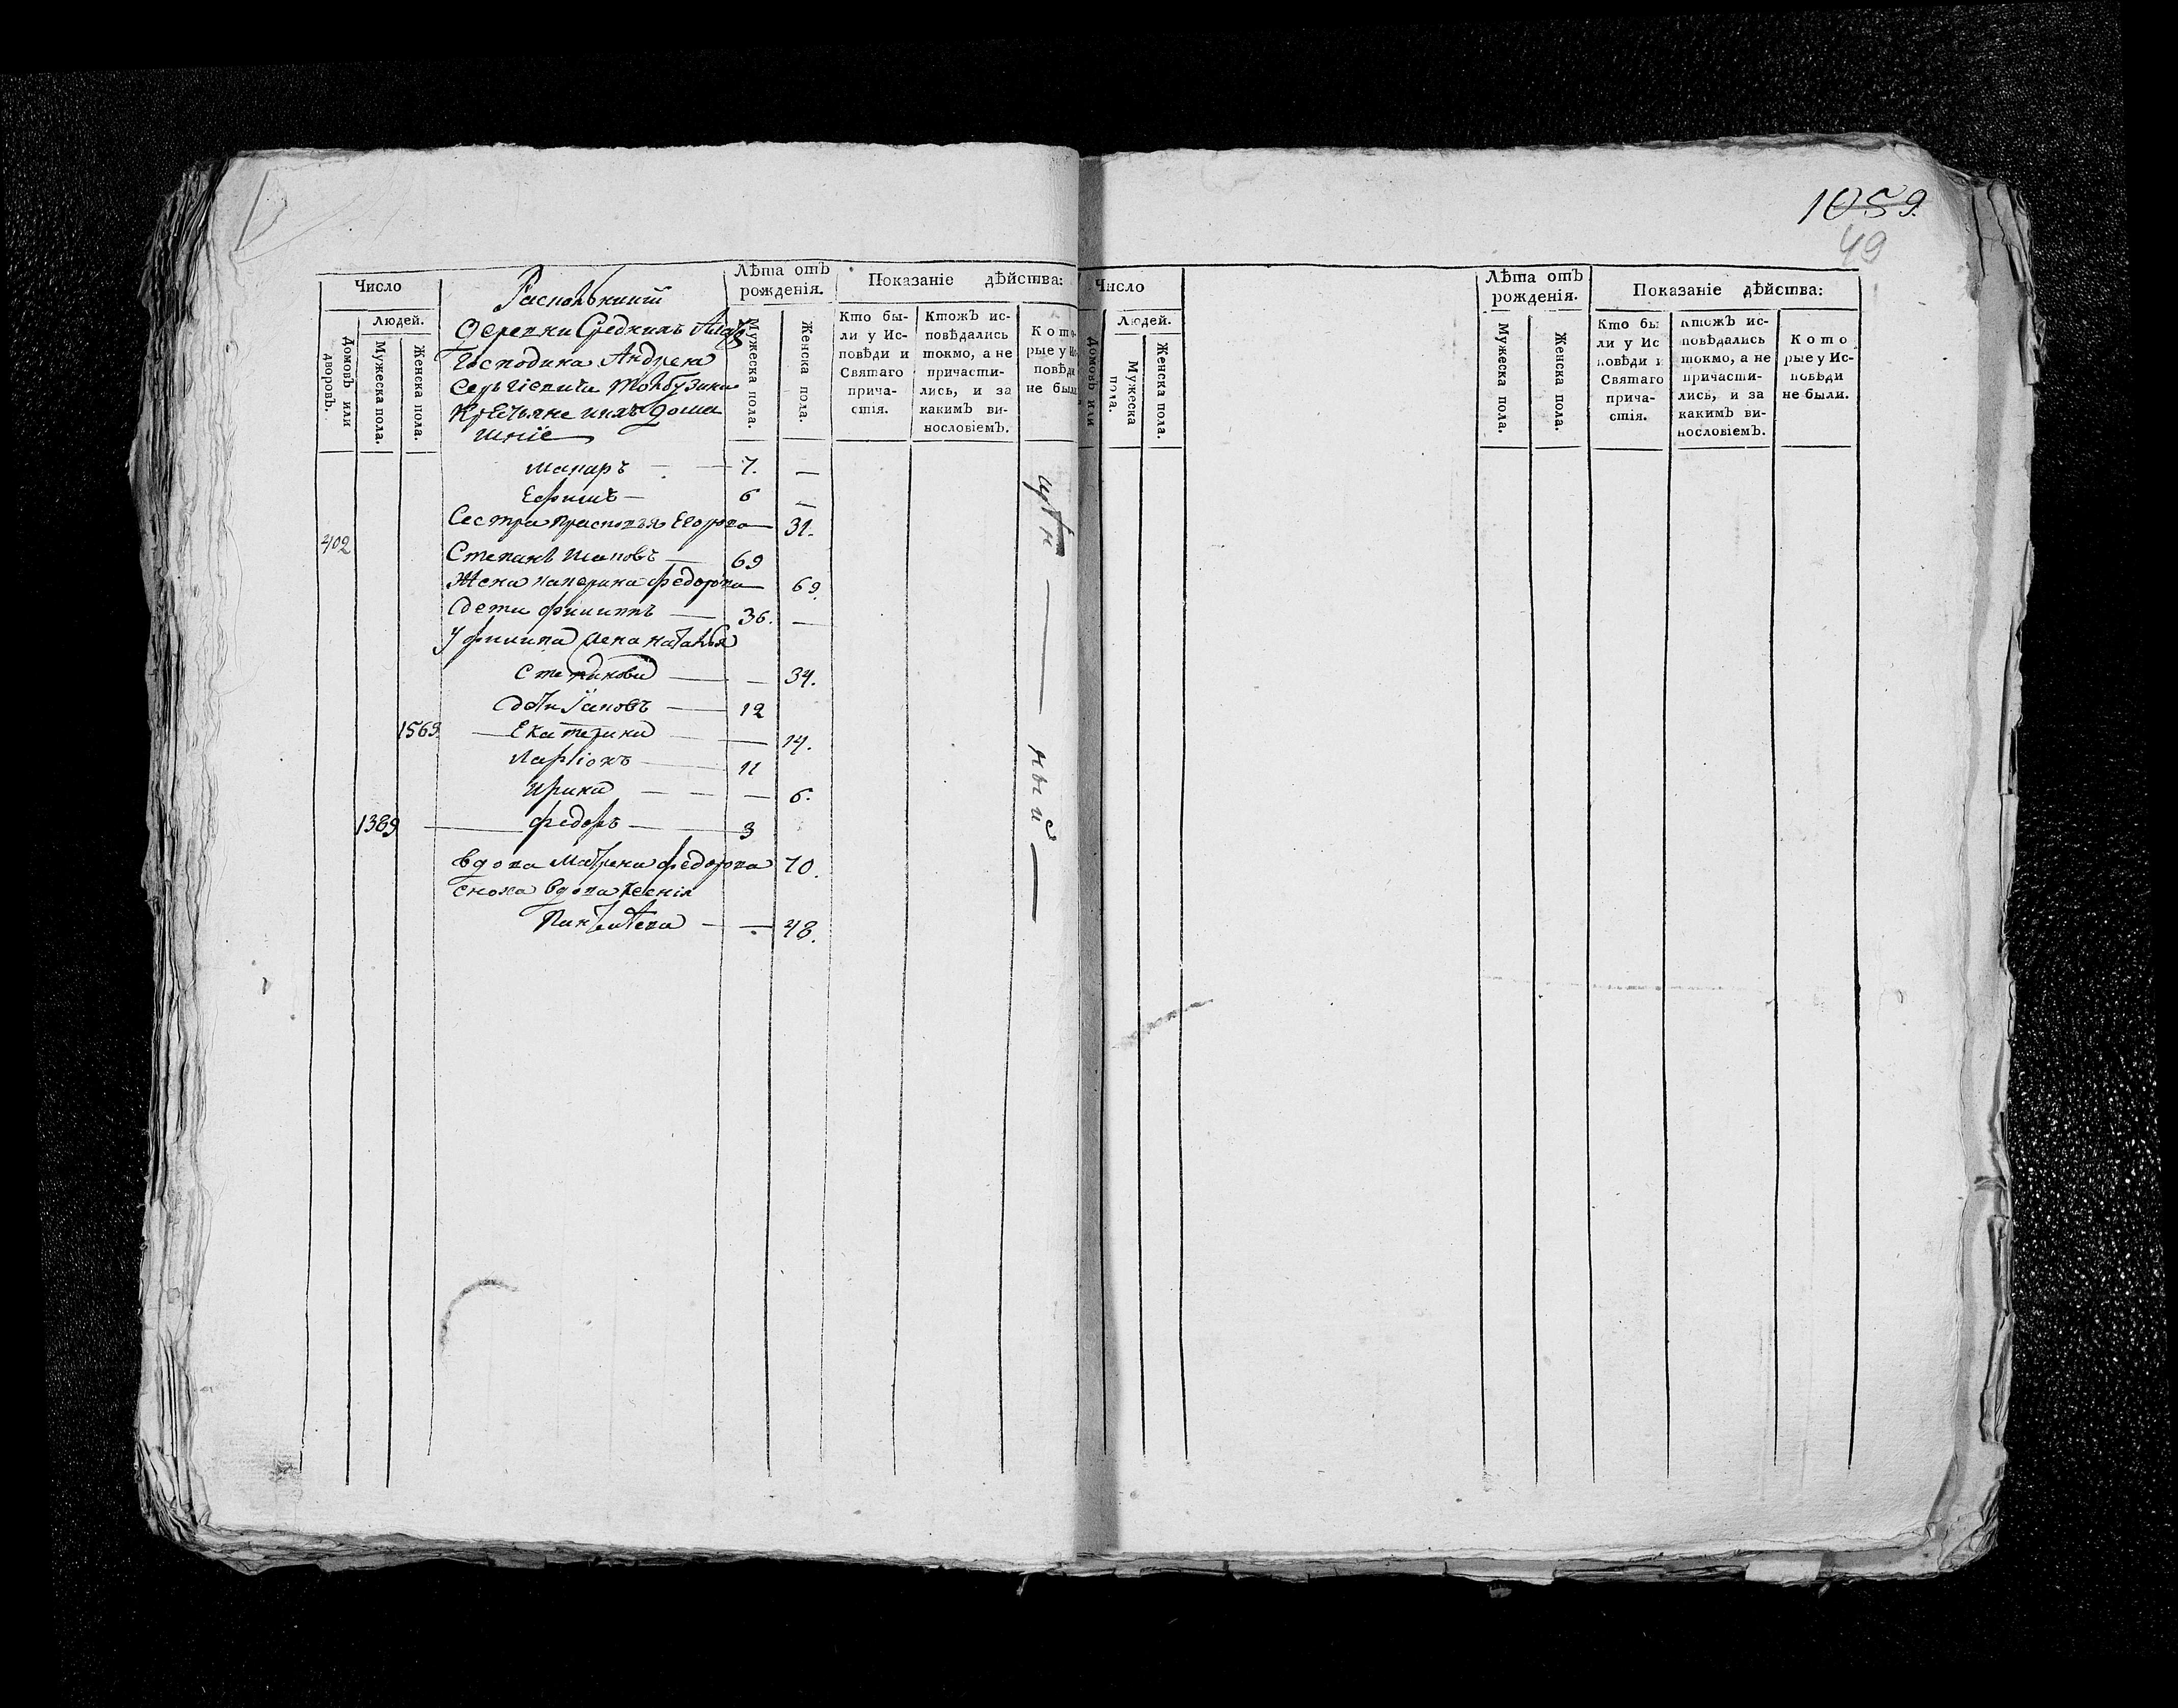 1059.
49
Число
Людей.
Домовъ или дворовъ.
Мужеска пола.
Женска пола.
Раскольники
Деревни Среднихъ
Господина Андрея
Сергіевича Толбузина
Крестьяне и ихъ дома
шніе
Лѣта отъ рожденія.
Мужеска пола.
Женска пола.
Показаніе дѣйства:
Кто бы-
ли у Ис-
повѣди и
Святаго
прича-
стія.
Ктожъ ис-
повѣдались
токмо, а не
причасти-
лись, и за
какимъ ви-
нословіемъ.
Кото-
рые у Ис
повѣди
не были
Макаръ — 7. —
Ефимъ — 6 —
Сестра Прасковья Егорова — 31.
402 Степанъ Ивановъ — 69
Жена Катерина Федорова — 69.
Дети Филиппъ — 36. —
У Филиппа жена Наталья
Степанова — — 34.
Дети Іаковъ — 12
1569. — Екатерина — — 14.
Ларіонъ — 11
Ирина — — — 6.
1389 — Федоръ — 3
вдова Матрена Федорова 70.
сноха вдова Ксенія
— — 48.
ный —
Число
Людей.
Домовъ или
Мужеска пола.
Женска пола.
Лѣта отъ
рожденія.
Мужеска пола.
Женска пола.
Показаніе дѣйства:
Кто бы
ли у Ис
повѣди и
Святаго
прича-
стія.
Ктожъ ис-
повѣдались
токмо, а не
причасти-
лись, и за
какимъ ви-
нословіемъ.
Кото
рые у Ис-
повѣди
не были.